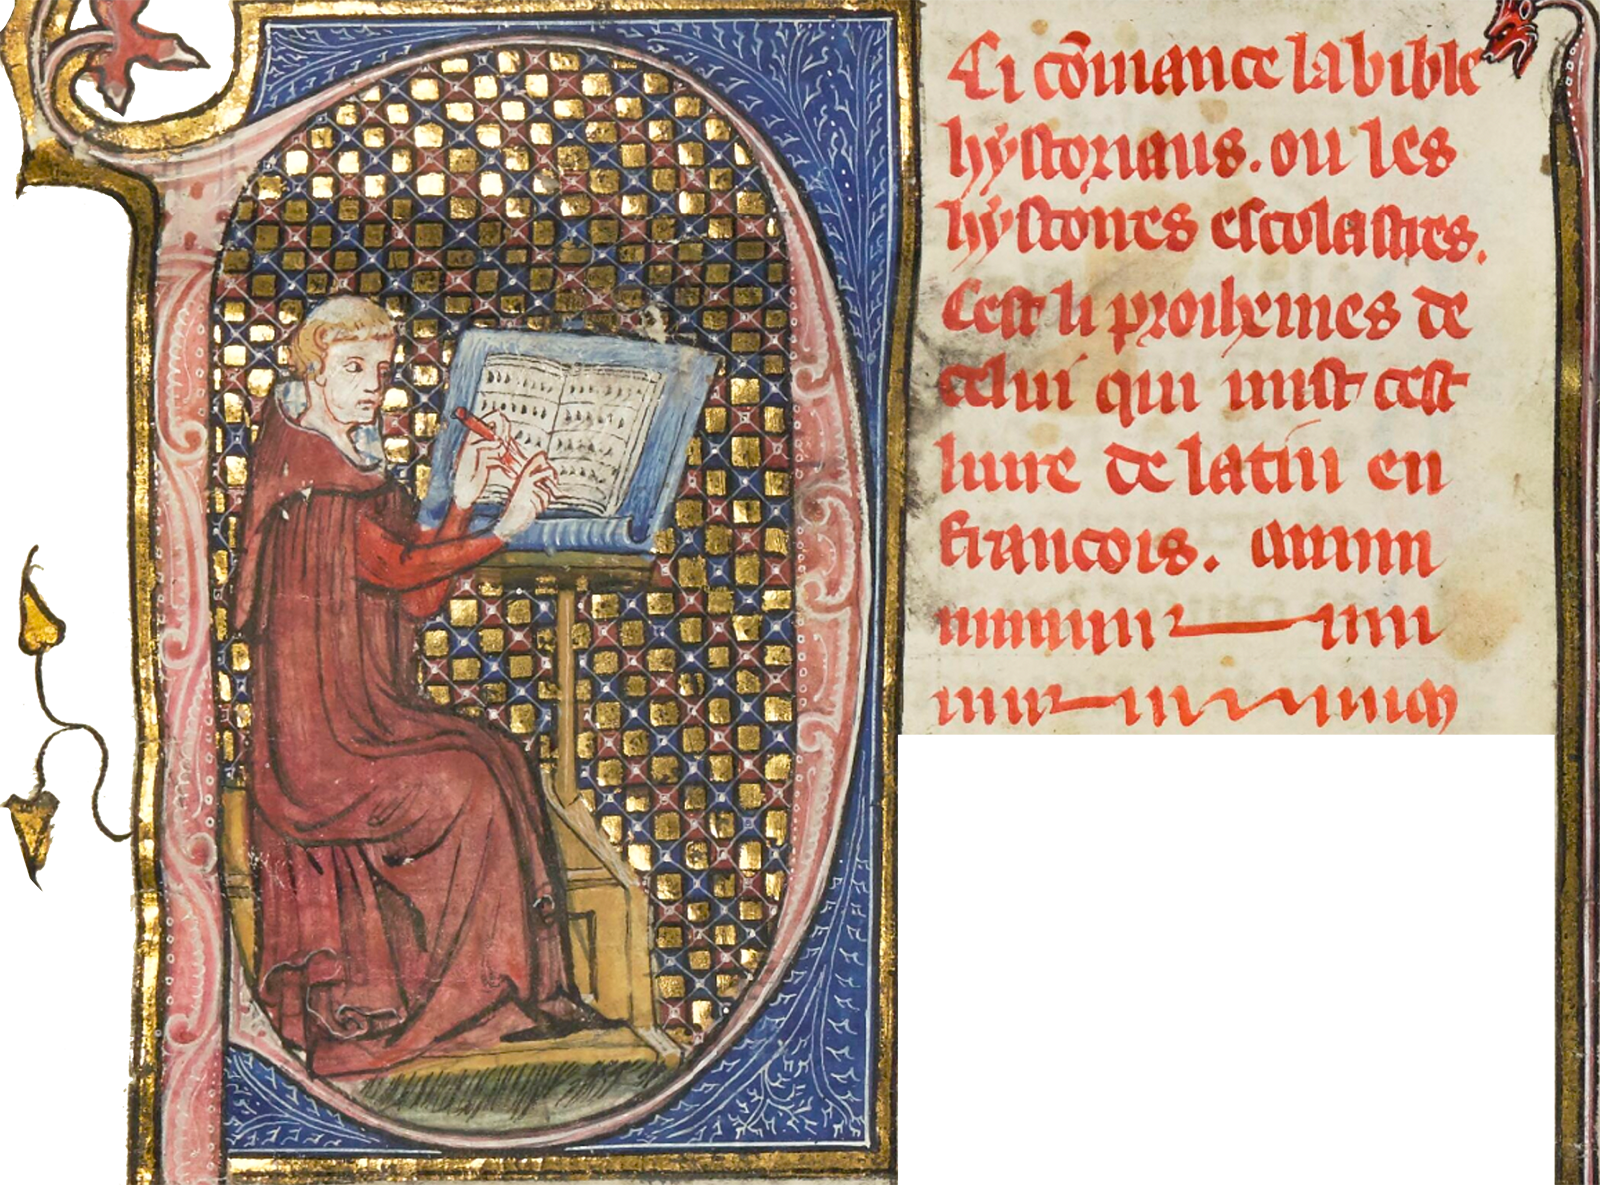 Ci cōmance la bible
hystoriaus. ou les
hystoires escolastres.
Cest li prohemes de
celui qui mist cest
liure de latin en
francois. Amm